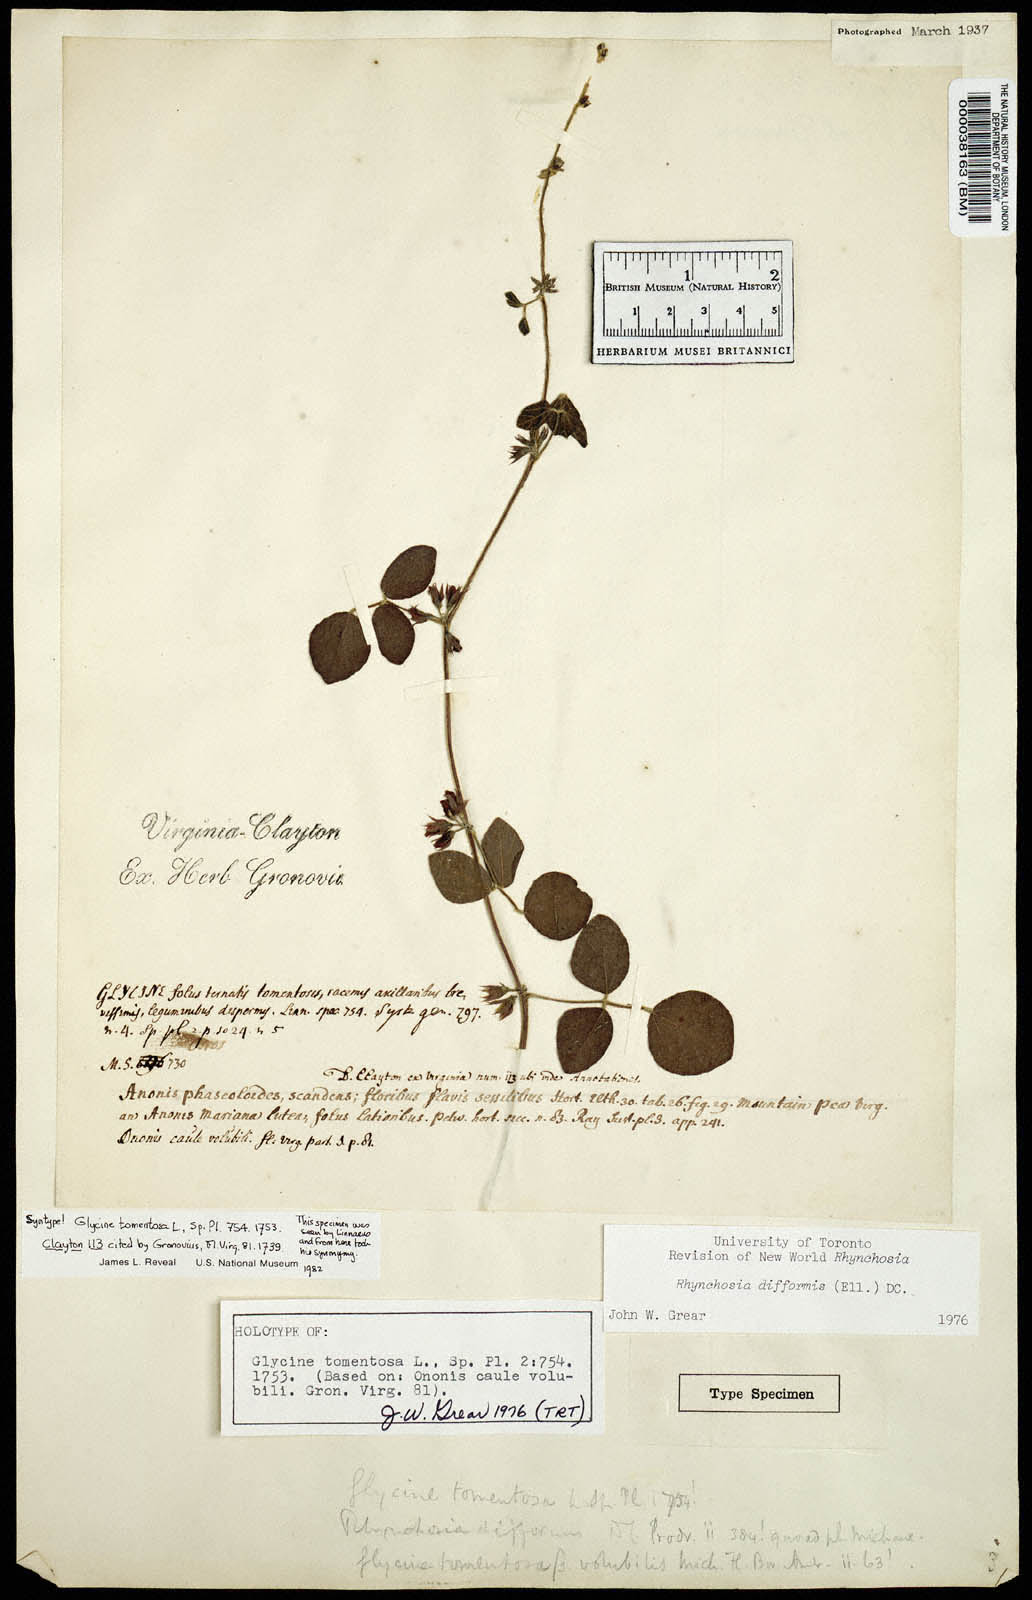 Photographed March 1937
THE NATURAL HISTORY MUSEUM, LONDON
DEPARTMENT OF BOTANY
000038163 (BM)
1 2
BRITISH MUSEUM (NATURAL HISTORY)
1 2 3 4 5
HERBARIUM MUSEI BRITANNICI
Virginia-Clayton
Ex. Herb Gronovii
GLYCINE folus ternatis tomentosis, racemis axillaribus bre,
vissimis, leguminibus dispermis. Linn. spec 754. Syst. gen. 797.
n. 4. Sp. pl. 2. p. 1024. n 5
M.S. 730
D. Clayton ex Virginia num. 113 ubi vide Annotationes.
Anonis phaseoloides, scandens; floribus flavis sessilibus Hort. Elth. 30. tab. 26. fig. 29. Mountain pea Virg.
an Anonis Mariana lutea, folus latioribus. petiv. hort. sicc. n. 83. Ray Sust. pl. 3. app. 241.
Ononis caule volubili. fl. virg. part. 1. p. 81.
Syntype! Glycine tomentosa L., Sp. Pl. 754. 1753.
Clayton 113 cited by Gronovius, Fl. Virg. 81. 1739.
James L. Reveal U.S. National Museum
This specimen was
seen by Linnaeus
and from here took
his synonymy.
1982
University of Toronto
Revision of New World Rhynchosia
Rhynchosia difformis (Ell.) DC.
John W. Grear 1976
HOLOTYPE OF:
Glycine tomentosa L., Sp. Pl. 2:754.
1753. (Based on: Ononis caule volu-
bili. Gron. Virg. 81).
J.W. Grear 1976 (TRT)
Type Specimen
Glycine tomentosa L. Sp. Pl. 1754!
Rhynchosia difformis DC Prodr. ii 384! quoad pl. Michaux.
Glycine tomentosa β volubilis Mich. Fl. Bor. Amer. ii. 63!
3